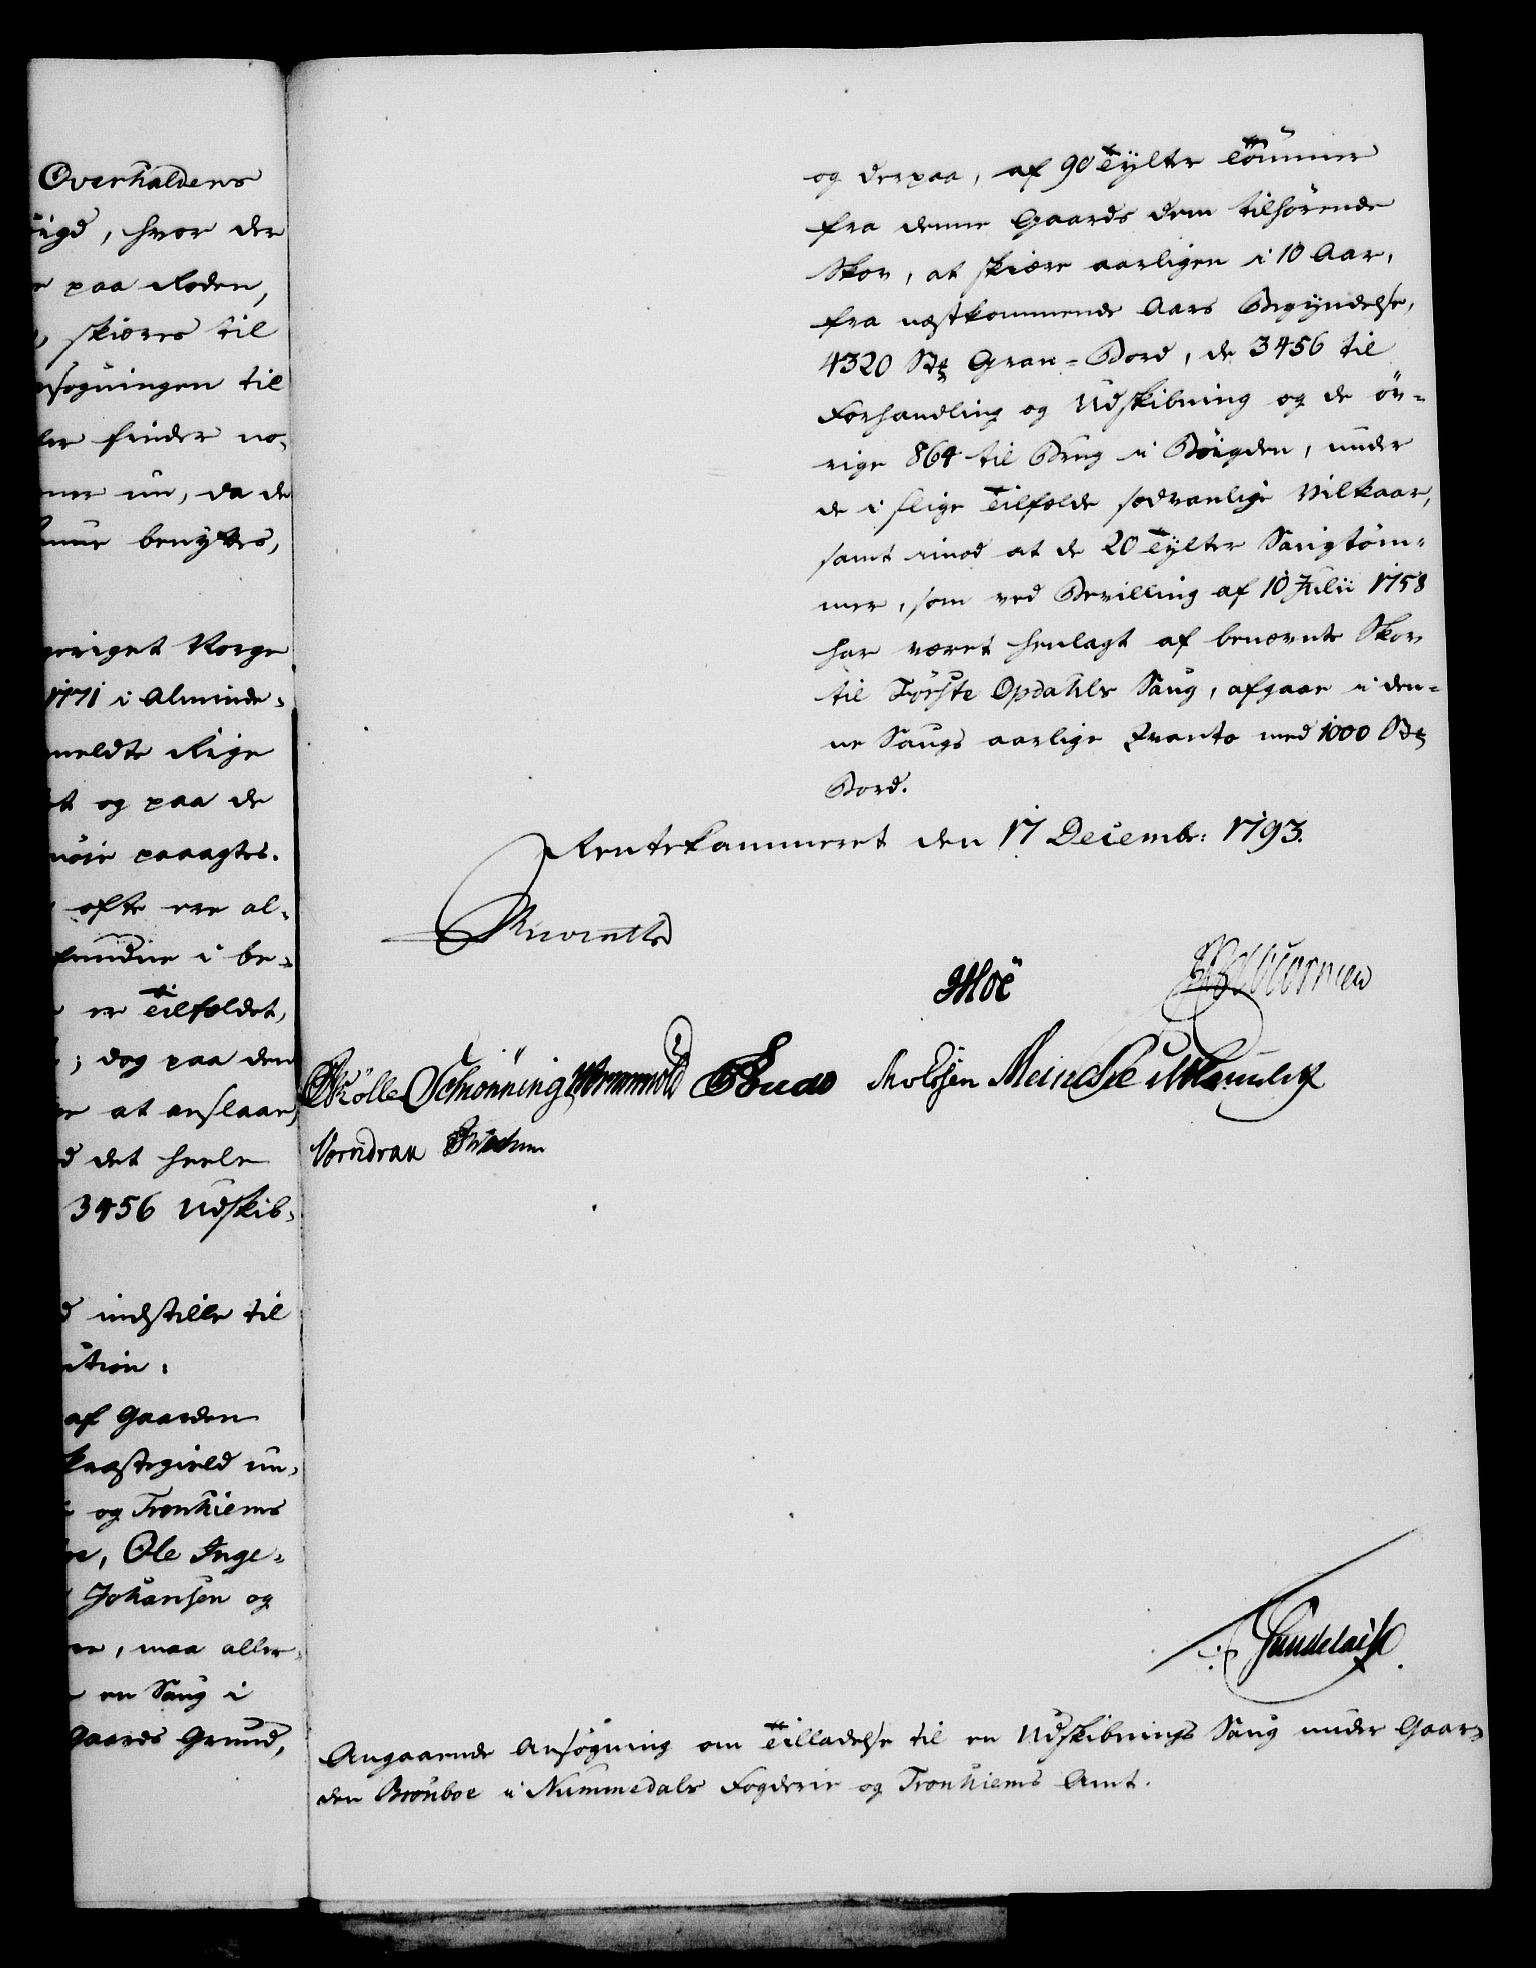 Overhaldens
igd, hvor der
paa Roden,
skiæres til
søgningen til
finder no-
nu, da de
benyttes,
geriget Norge
1771 i Alminde-
meldte Rige
og paa de
nøie paaagtes.
ofte ere al-
fundne i be-
er Tilfældet,
; dog paa den
at anslaae,
det heele
3456 Udskib-
indstille til
ution:
af Gaarden
Præstegield un-
og Tronhiems
Ole Inge-
Johansen og
maa aller-
en Saug i
Gaards Grund,
og derpaa, af 90 Tylter Tømmer
fra denne Gaards dem tilhørende
Skov, at skiære aarligen i 10 Aar,
fra næstkommende Aars Begyndelse,
4320 Stk Gran-Bord, de 3456 til
Forhandling og Udskibning og de øv-
rige 864 til Brug i Bøigden, under
de i slige Tilfælde sædvanlige Vilkaar,
samt imod at de 20 Tylter Saugtøm-
mer, som ved Bevilling af 10 Julii 1758
har været henlagt af benævnte Skov
til Tørste Opdahls Saug, afgaae i den-
ne Saugs aarlige Qvanto med 1000 Stk
Bord.
Rentekammeret den 17 Decembr: 1793.
Reventlow
Moe
Schønning Wormskiold Meincke
Vorndran
Angaaende Ansøgning om Tilladelse til en Udskibnings Saug under Gaar-
den Brønboe i Nummedals Fogderie og Tronhiems Amt.